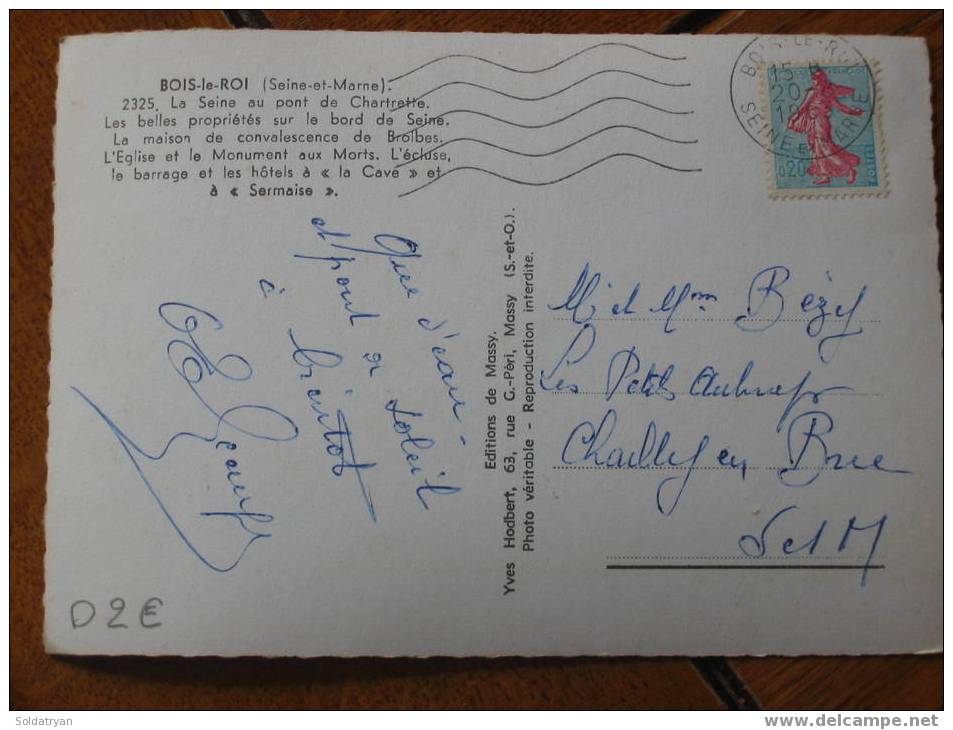 BOIS-le-ROI (Seine-et-Marne).
2325. La Seine au pont de Chartrette.
Les belles propriétés sur le bord de Seine.
La maison de convalescence de Brolbes.
L'Eglise et le Monument aux Morts. L'écluse,
le barrage et les hôtels à « la Cave » et
à « Sermaise ».
BOIS-LE-ROI
15 H
20 -
19
SEINE ET MARNE
0,20
Que d'eau -
et point de soleil
à bientot
Editions de Massy.
Yves Hodbert, 63, rue G.-Péri, Massy (S.-et-O.).
Photo véritable - Reproduction interdite.
M et Mme Bézy
Les Petits
Chailly en Brie
S et M
D 2 €
Soldatryan
www.delcampe.net